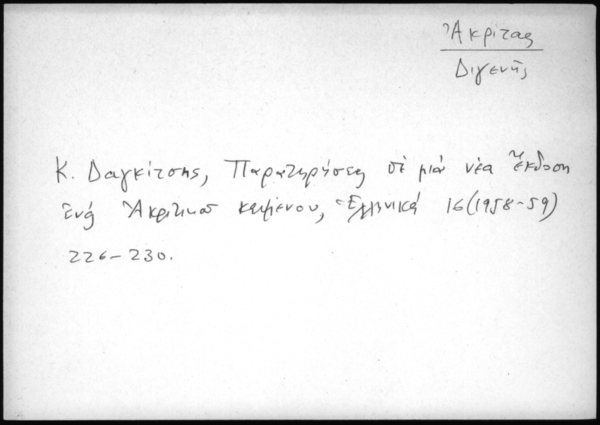 Ἀκρίτας
Διγενής
Κ. Δαγκίτσης, Παρατηρήσεις σὲ μιὰ νέα ἔκδοση
ἑνὸς Ἀκριτικοῦ κειμένου, Ἑλληνικά 16 (1958-59)
226-230.